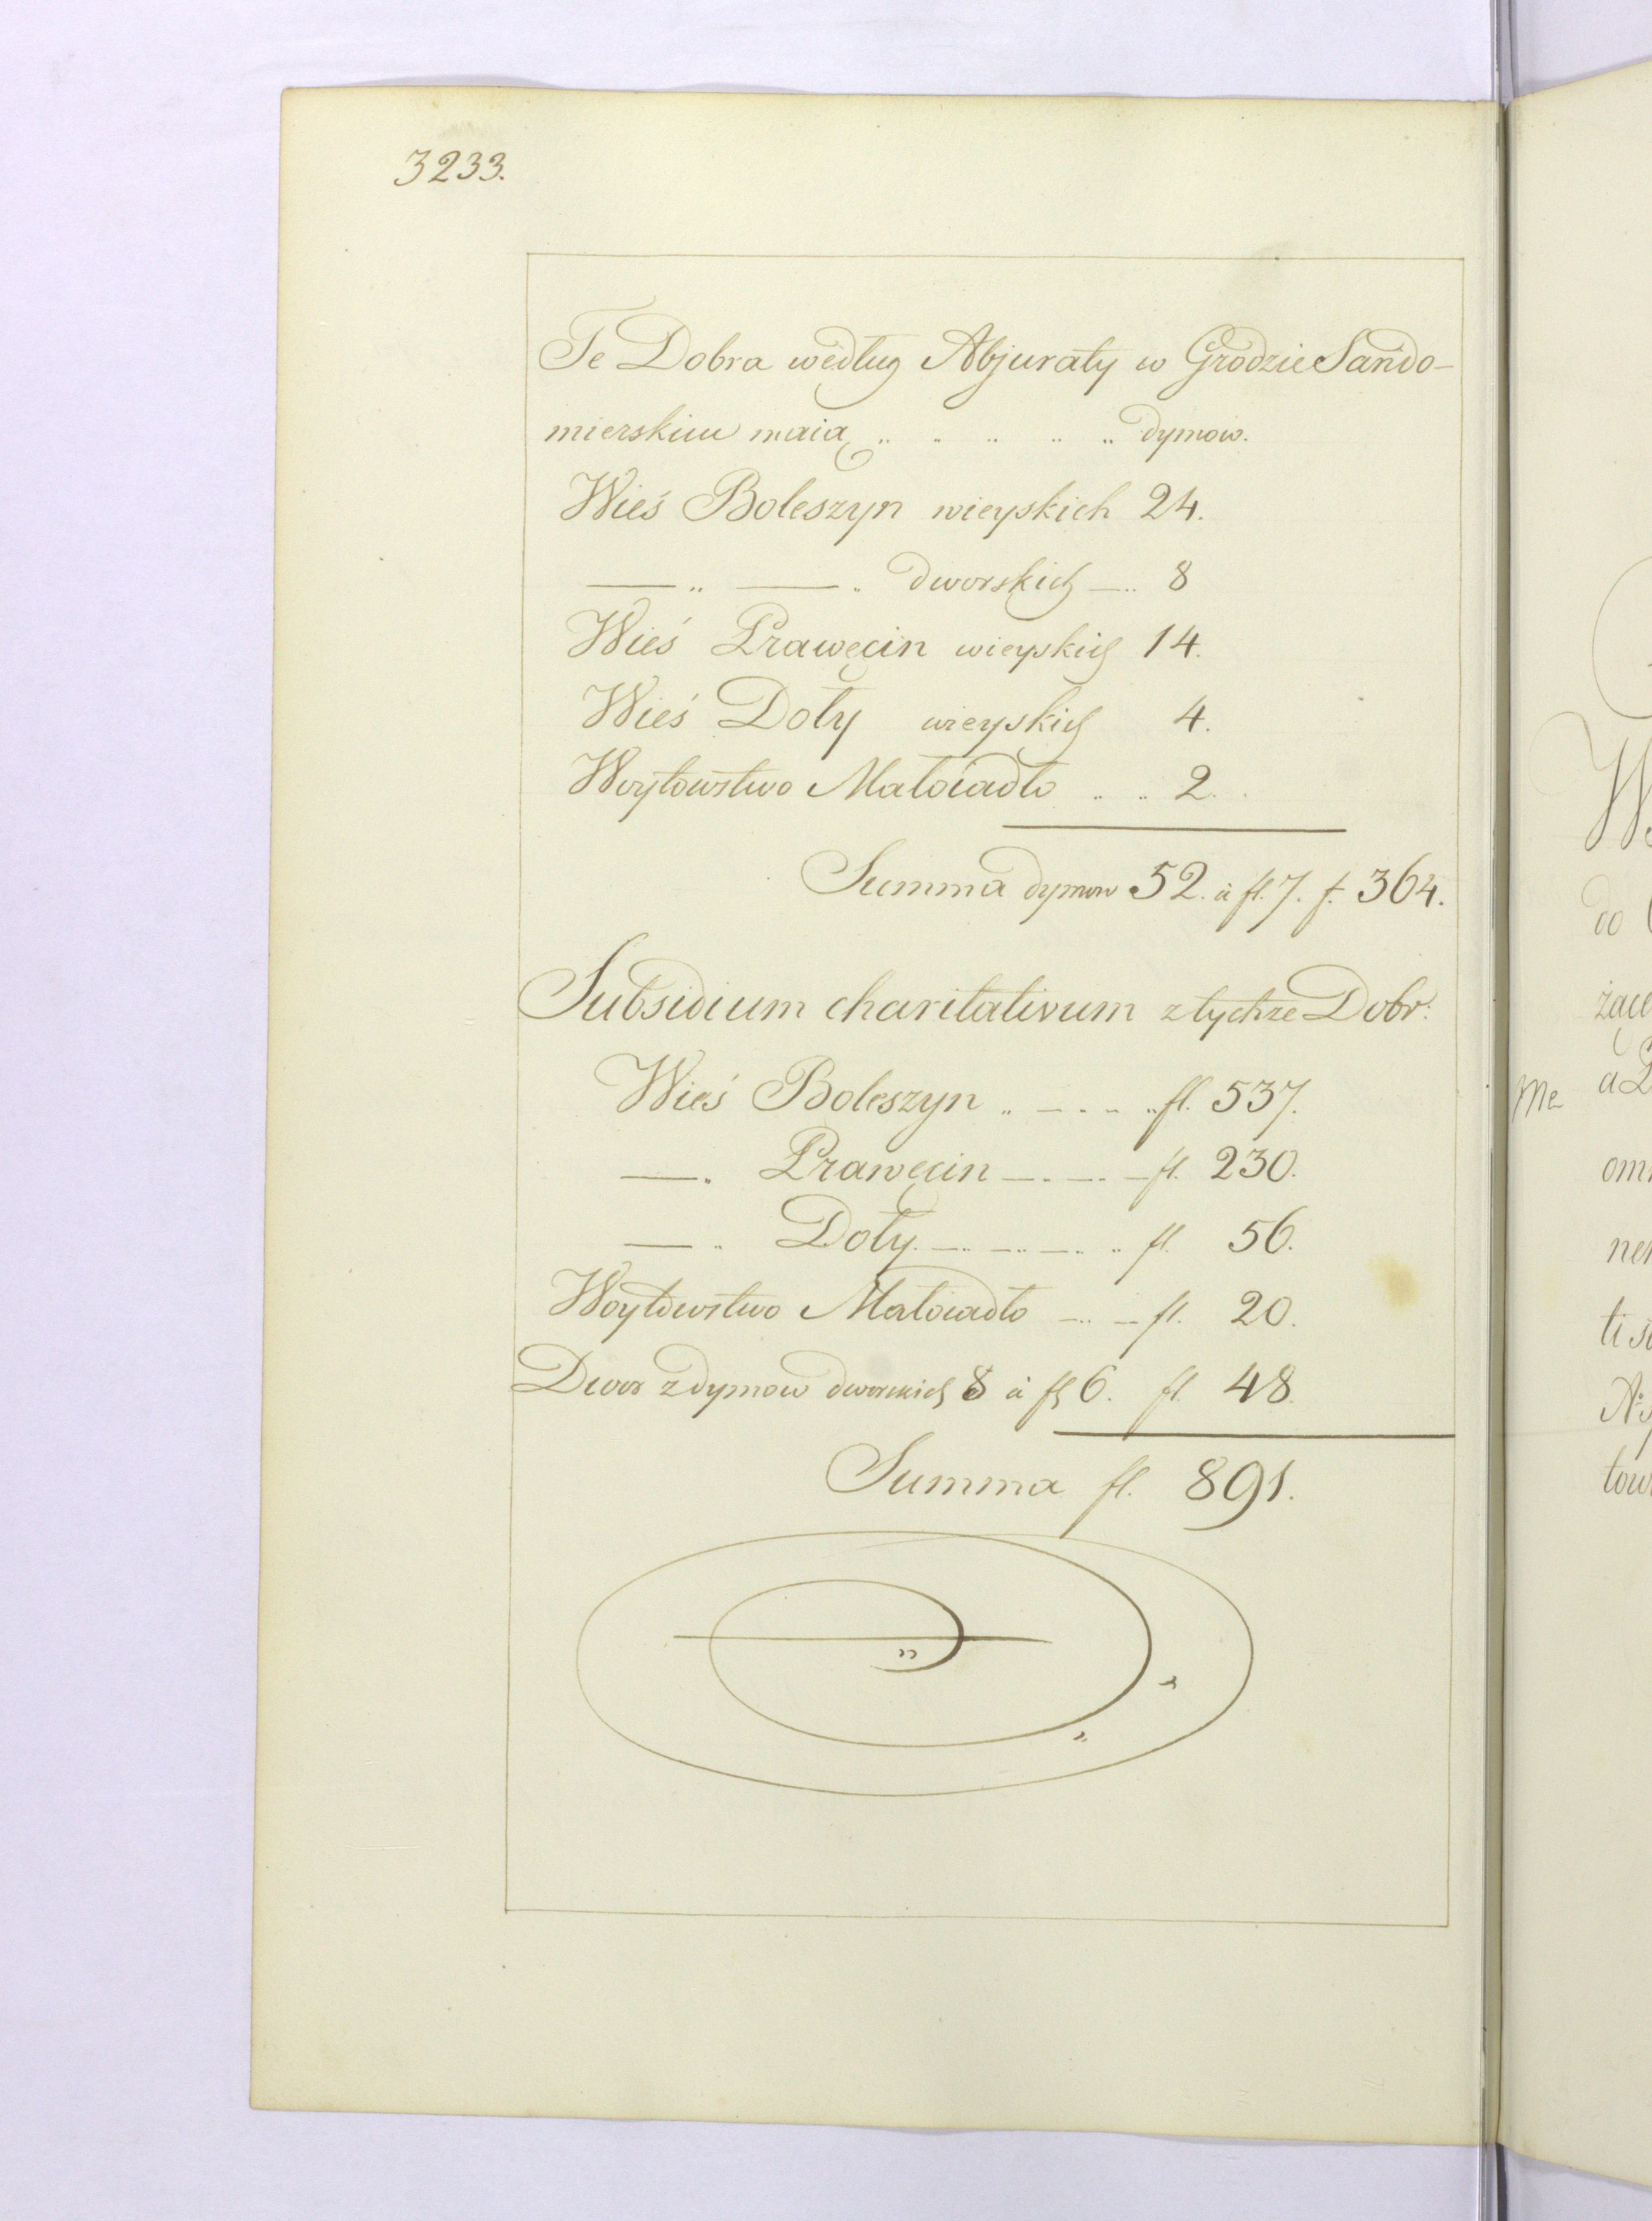 3233.
Te Dobra według Abjuraty w Grodzie Sando-
mierskim maią .. .. .. .. .. dymow.
Wieś Boleszyn wieyskich 24.
— .. — .. dworskich — .. 8
Wieś Prawęcin wieyskich 14.
Wieś Doły wieyskich 4.
Woytowstwo Małoiadło .. .. 2.
Summa dymow 52. à fl. 7. f. 364.
Subsidium charitativum z tychże Dobr:
Wieś Boleszyn .. — .. .. .. fl. 537.
— . Prawęcin — . — . — fl. 230.
— .. Doły. — .. — .. — .. .. fl. 56.
Woytowstwo Małoiadło — .. — fl. 20.
Dwor z dymow dworskich 8 à fl 6. fl. 48.
Summa fl. 891.
do
żące
me